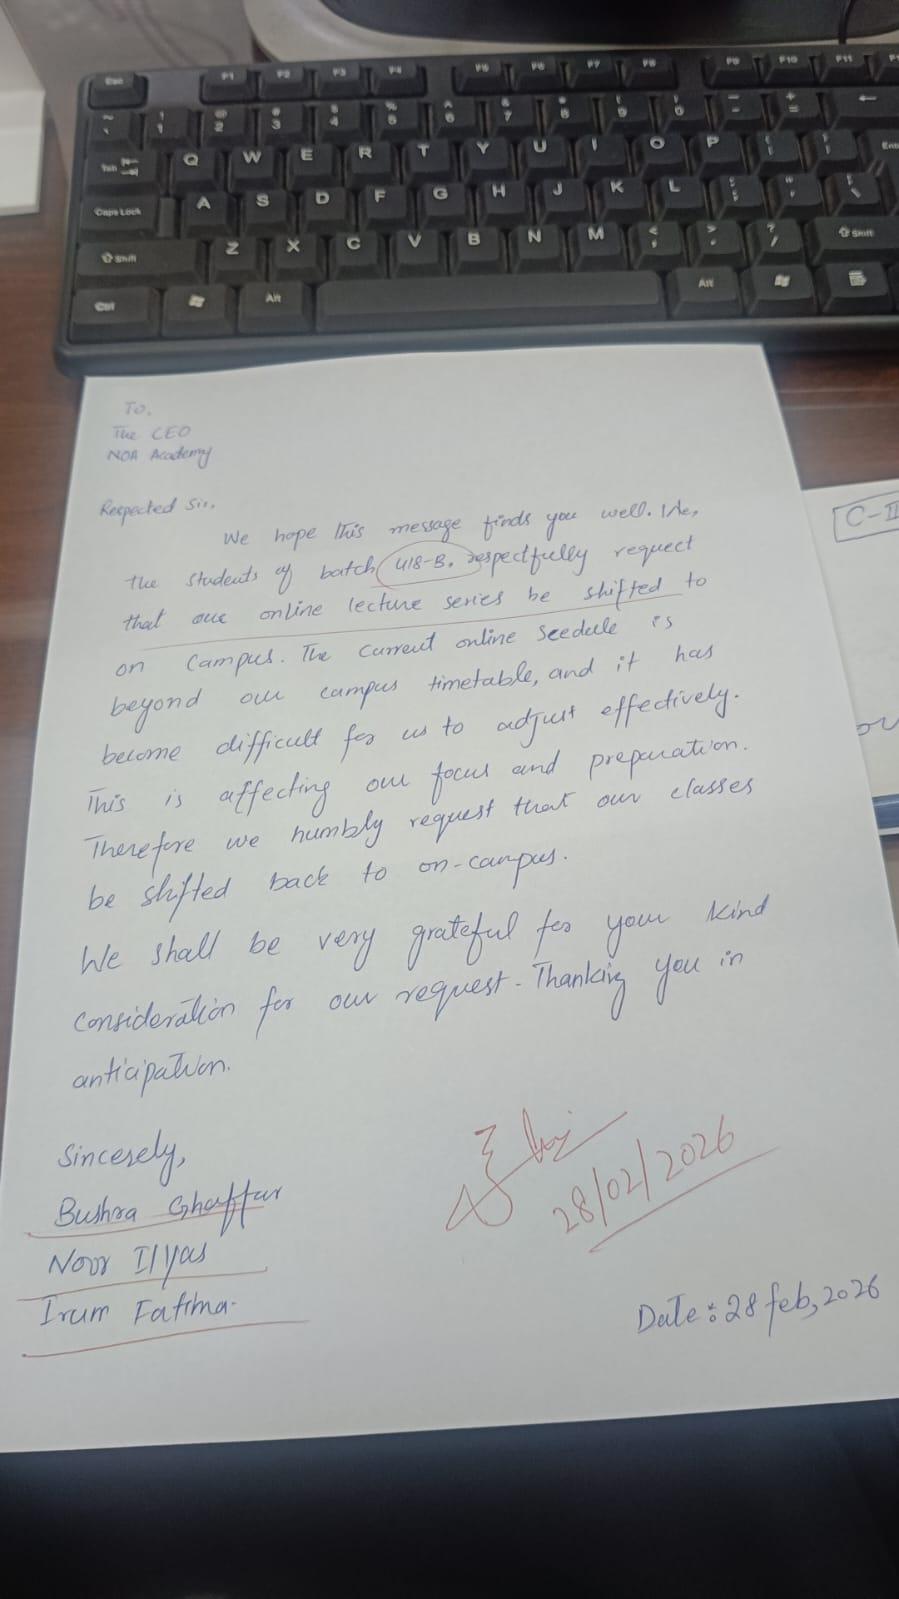 To,
The CEO
NOA Academy
Respected Sir,
We hope this message finds you well. We,
the students of batch 418-B, respectfully request
that our online lecture series be shifted to
on campus. The current online Seedule is
beyond our campus timetable, and it has
become difficult for us to adjust effectively.
This is affecting our focus and preparation.
Therefore we humbly request that our classes
be shifted back to on-campus.
We shall be very grateful for your kind
consideration for our request. Thanking you in
anticipation.
Sincerely,
Bushra Ghaffar
Noor Ilyas
Irum Fatima.
28/02/2026
Date: 28 feb, 2026
C-II
Esc F1 F2 F3 F4 F5 F6 F7 F8 F9 F10 F11
Tab Q W E R T Y U I O P
Caps Lock A S D F G H J K L
Shift Z X C V B N M Shift
Ctrl Alt Alt